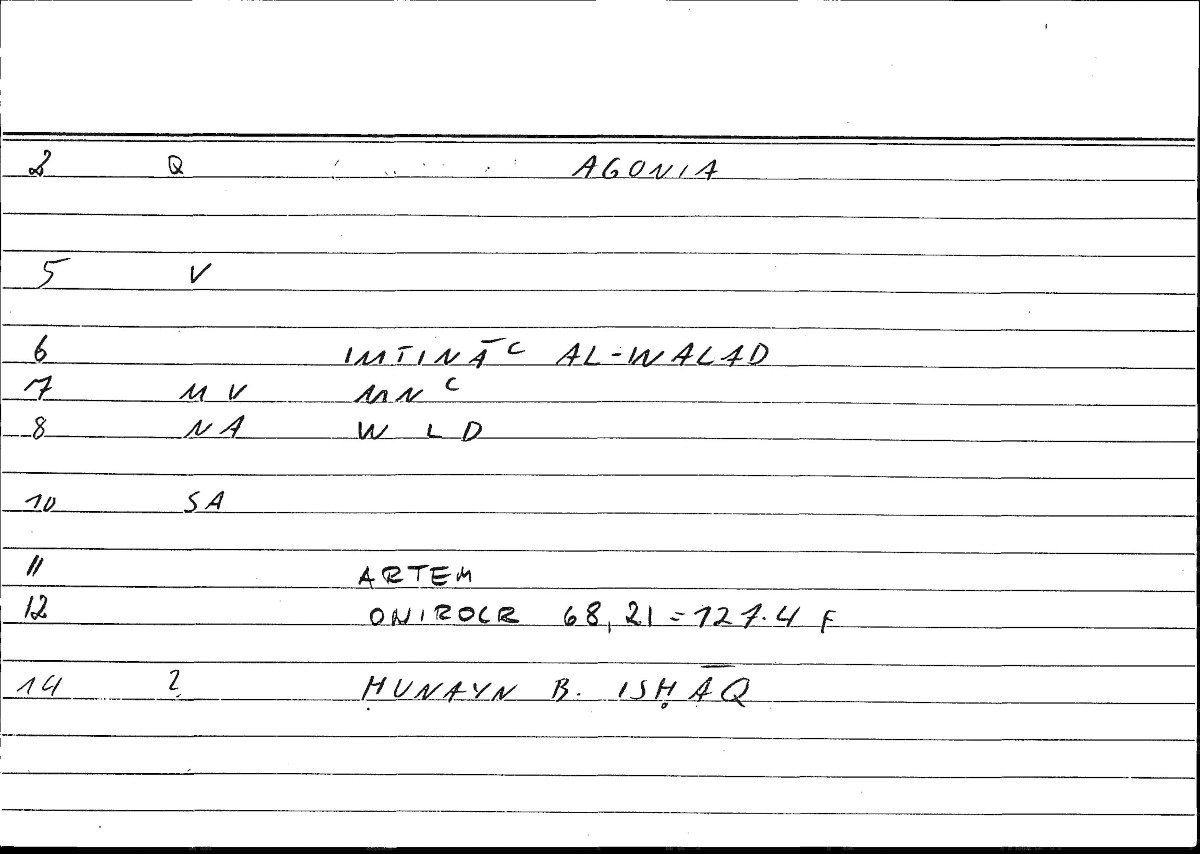 2 Q AGONIA
5 V
6 IMTINĀC AL-WALAD
7 MV MNC
8 NA WLD
10 SA
11 ARTEM
12 ONIROCR 68,21=127.4 F
14 2 ḤUNAYN B. ISḤĀQ